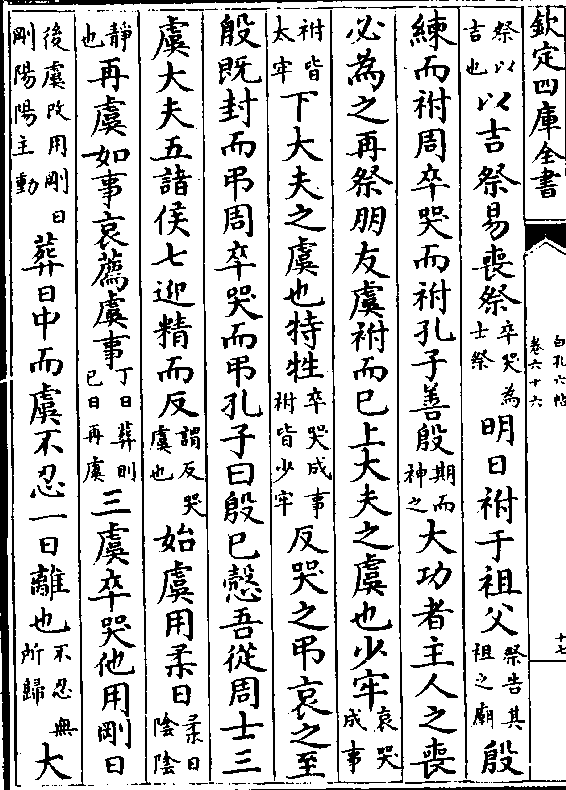 欽定四庫全書
白孔六帖
卷六十六
十七
祭以吉也以吉祭易喪祭卒哭為士祭明日祔于祖父祭告其祖之廟殷
練而祔周卒哭而祔孔子善殷期而神之大功者主人之喪
必為之再祭朋友虞祔而已上大夫之虞也少牢哀哭成事
祔皆太牢下大夫之虞也特牲卒哭成事祔皆少牢反哭之弔哀之至
殷既封而弔周卒哭而弔孔子曰殷已慤吾從周士三
虞大夫五諸侯七迎精而反謂反哭虞也始虞用柔日柔日陰陰
靜也再虞如事哀薦虞事丁日葬則已日再虞三虞卒哭他用剛日
後虞改用剛日剛陽陽主動葬日中而虞不忍一日離也不忍無所歸大